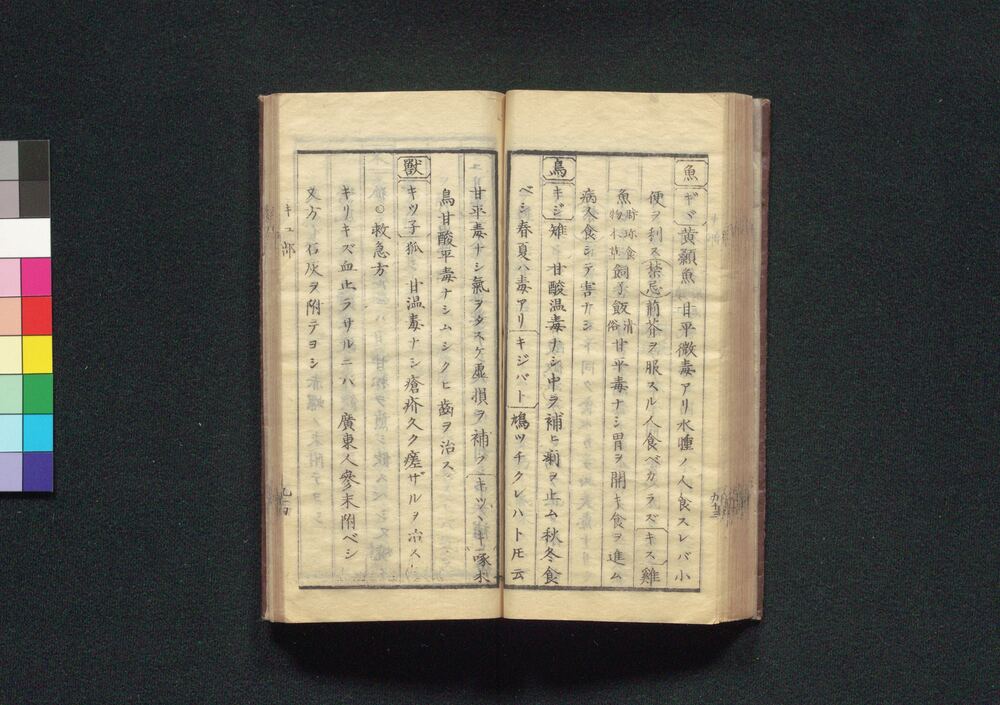 魚 ギヾ 黄顙魚 甘平微毒アリ水腫ノ人食スレバ小
便ヲ利ス 禁忌 煎茶ヲ服スル人食ベカラズ キス 雞
魚 甘平毒ナシ胃ヲ開キ食ヲ進ム
病人食シテ害ナシ
鳥 キジ 雉 甘酸温毒ナシ中ヲ補ヒ痢ヲ止ム秋冬食
ベシ春夏ハ毒アリ キジバト 鳩ツチクレバト圧云
甘平毒ナシ氣ヲタスケ虚損ヲ補フ キツヽキ 啄木
鳥甘酸平毒ナシムシクヒ歯ヲ治ス
獣 キツ子 狐 甘温毒ナシ瘡疥久ク瘥ザルヲ治ス
○救急方
キリキズ血止ラサルニハ 廣東人參末附ベシ
又方 石灰ヲ附テヨシ
キ 部
九十四